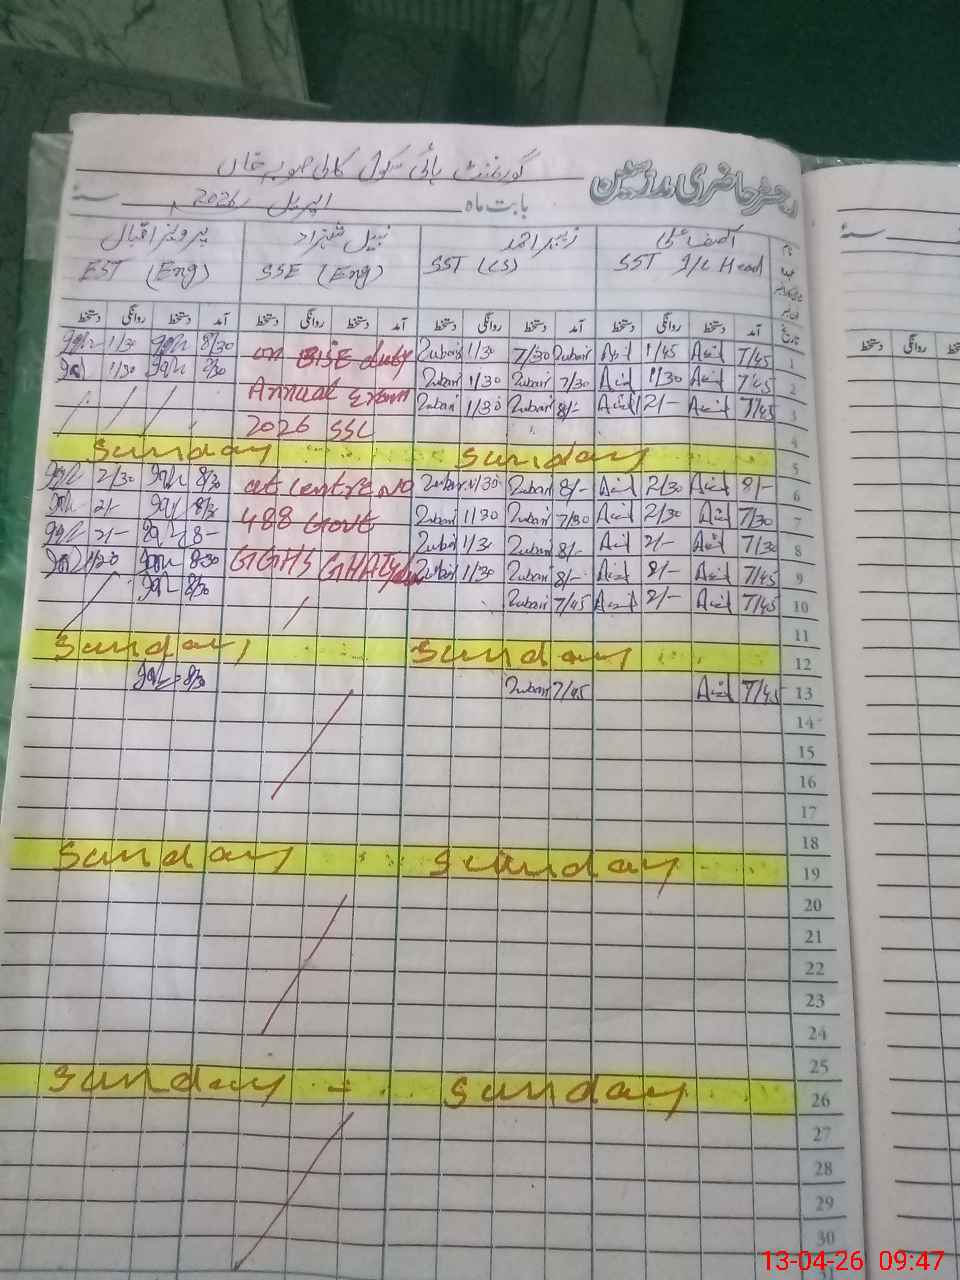 رجسٹر حاضری مدرسین
گورنمنٹ ہائی سکول کالی صوبہ خاں
بابت ماہ اپریل 2026 سنہ
آصف علی
SST I/C Head
زبیر احمد
SST (CS)
نبیل شہزاد
SSE (Eng)
پرویز اقبال
EST (Eng)
تاریخ آمد دستخط روانگی دستخط آمد دستخط روانگی دستخط آمد دستخط روانگی دستخط آمد دستخط روانگی دستخط
1 7/45 Asif 1/45 Asif Zubair 7/30 1/30 Zubair on BISE duty 8/30 1/30
2 7/45 Asif 1/30 Asif 7/30 Zubair 1/30 Zubair Annual Exam 1/30
3 7/45 Asif 2/- Asif 8/- Zubair 1/30 Zubair
4 2026 SSC
5 Sunday Sunday
6 8/- Asif 2/30 Asif 8/- Zubair 1/30 Zubair at centre No 8/30 2/30
7 7/30 Asif 2/30 Asif 7/30 Zubair 1/30 Zubair 488 Govt 8/30 2/-
8 7/30 Asif 2/- Asif 8/- Zubair 1/30 Zubair 8/- 2/-
9 7/45 Asif 8/- Asif 8/- Zubair 1/30 Zubair GGHS 8/30 1/20
10 7/45 Asif 2/- Asif 7/45 Zubair 8/30
11
12 Sunday Sunday
13 7/45 Asif 7/45 Zubair 8/30
14
15
16
17
18
19 Sunday Sunday
20
21
22
23
24
25
26 Sunday - Sunday
27
28
29
30
سنہ
دستخط روانگی
13-04-26 09:47